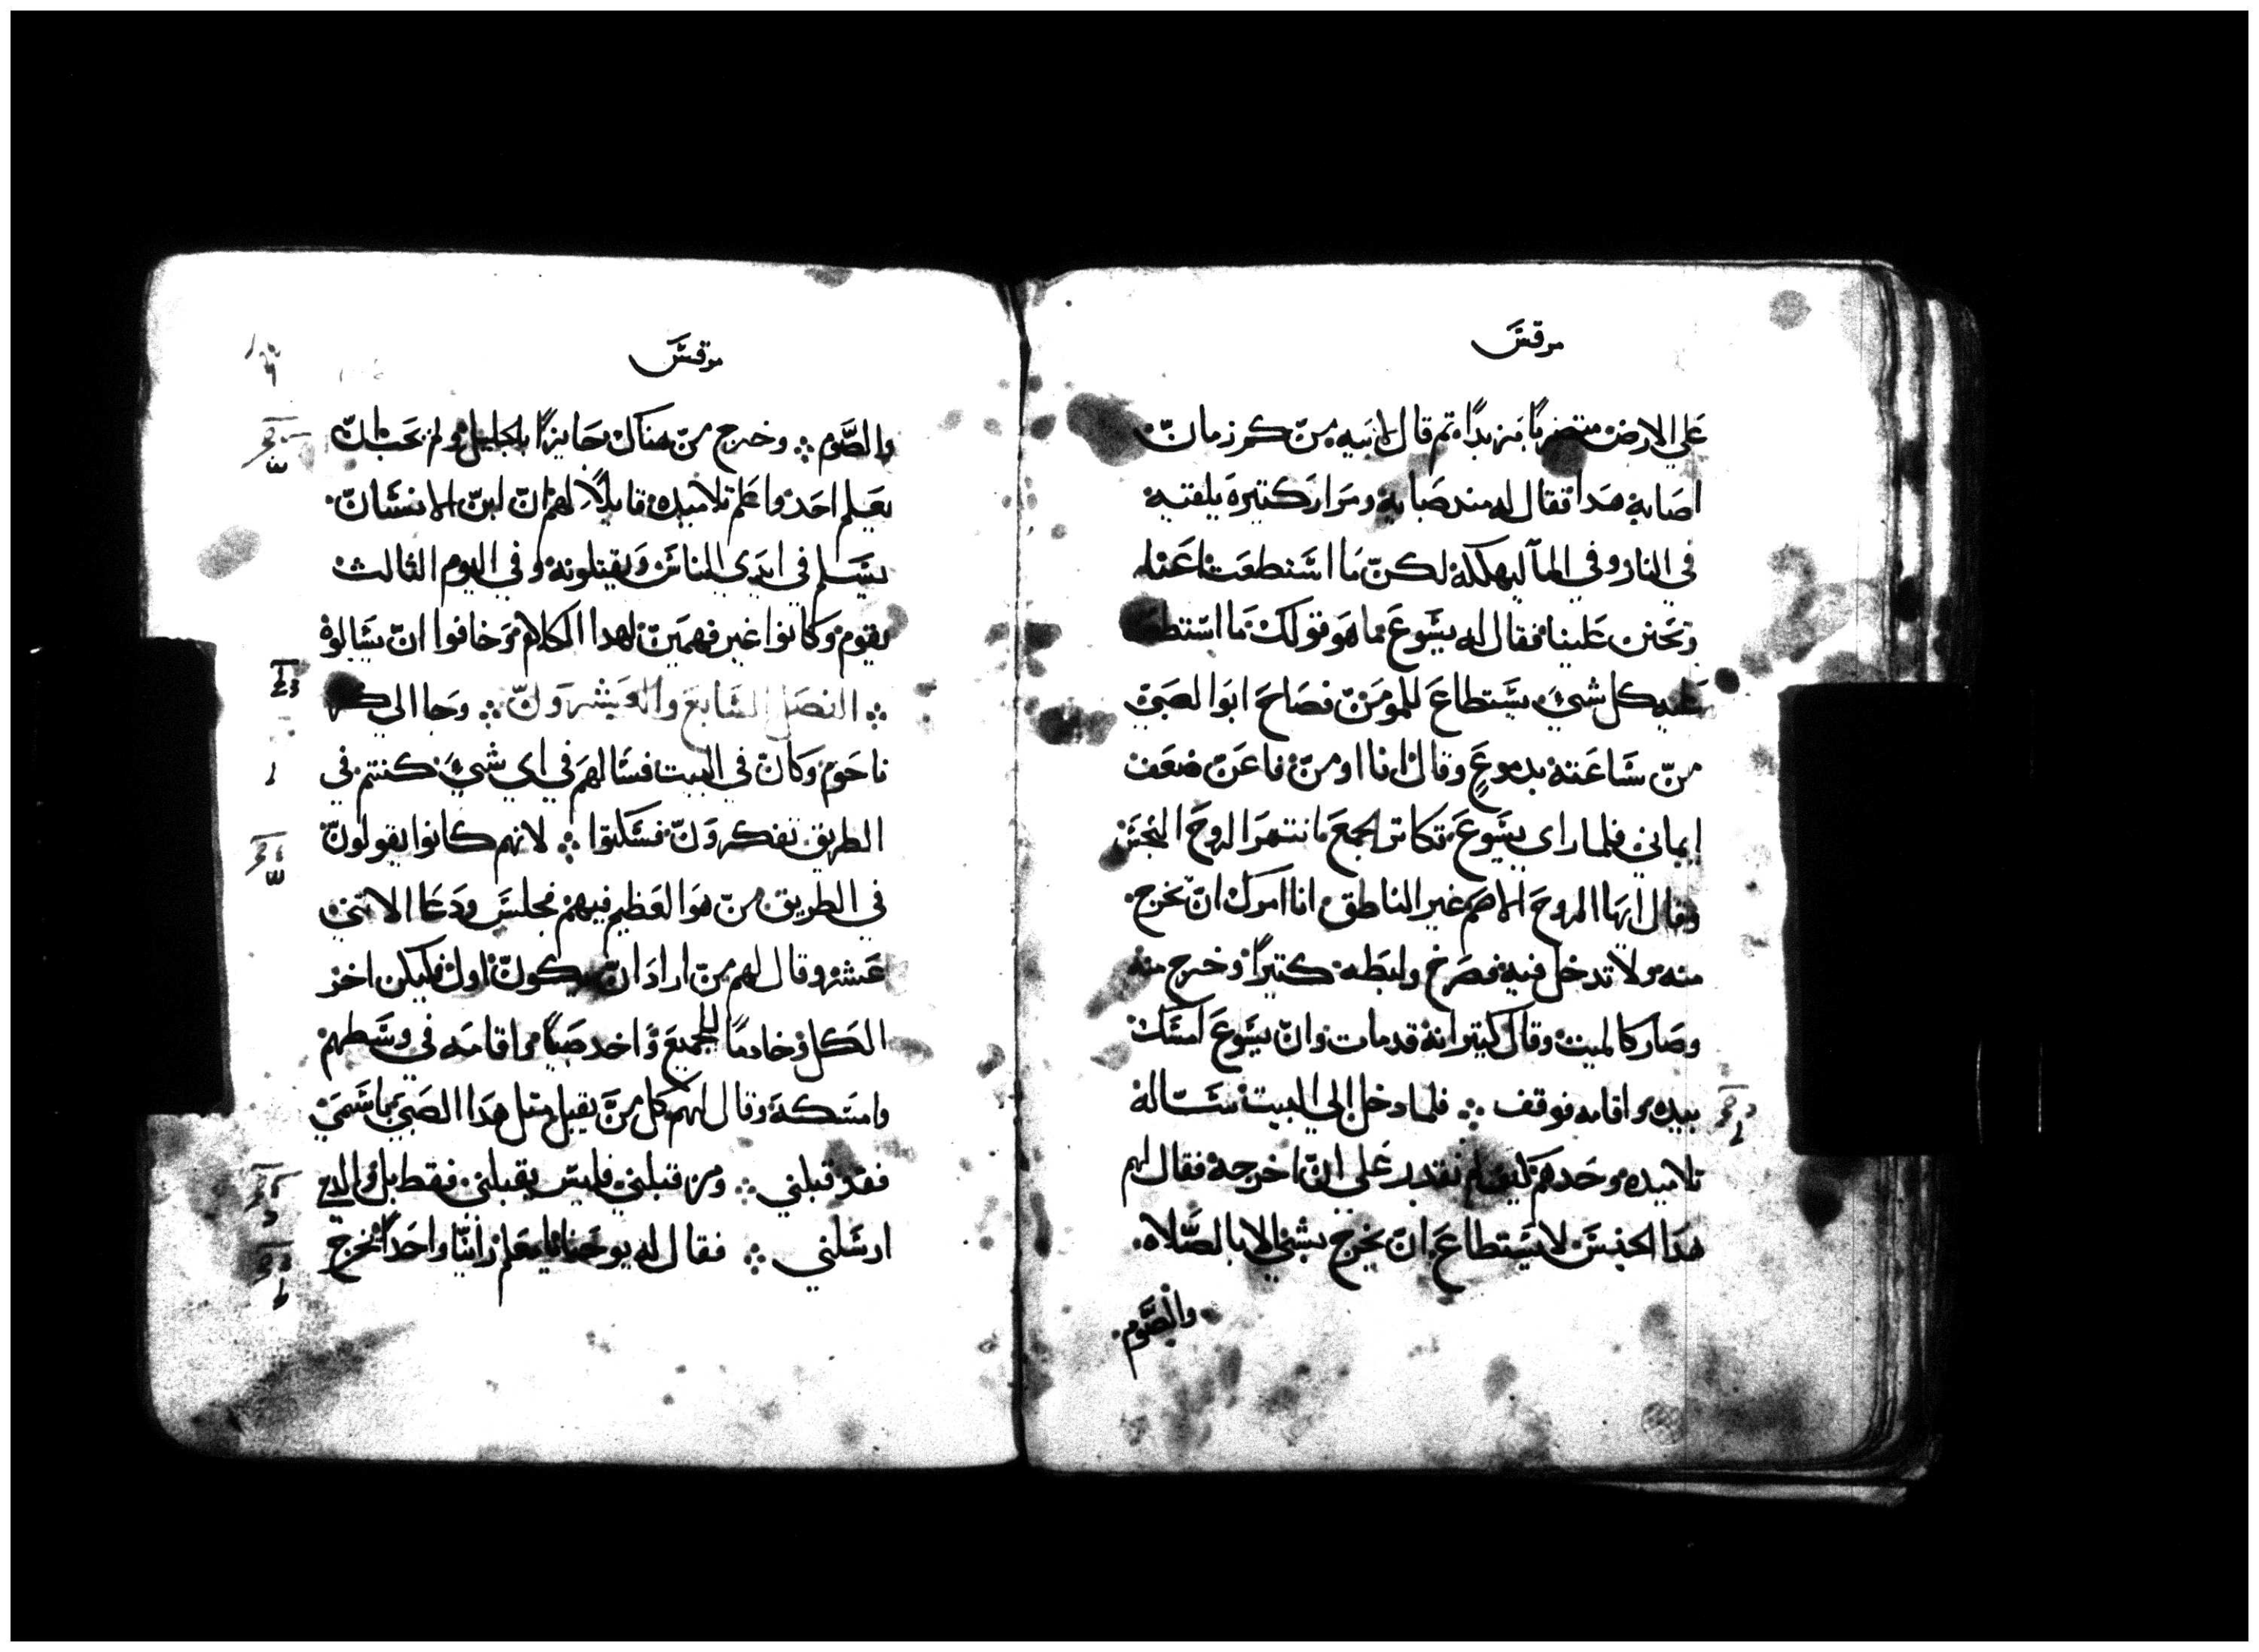 مرقسَ
علي الارض مزبداً ثم قال لابيه منّ كم زمانّ
اصابه هَدا فقال له مند صَباه ومَرار كتيره يلقيه
في النار وفي المآ ليهلكه لكنّ مَا اسَتطعَت اعَنا
وتحَنن عَلينا فقال له يسَوعَ ما هَو قولك مَا استطعـ
عَليه كل شيَ يسَتطاعَ للمومَنّ فصَاحَ ابَوا لصَبيَ
منّ سَاعَته بدموعٍ وقال انا اومنّ فاعَنّ ضعَف
ايماني فلما راى يسَوعَ تكاتر الجمعَ انتهرَ الروحَ النجسَ
وقال ايهَا الروحَ الاصَم غير الناطق انا امرك انّ تخرج
منه ولا تدخل فيه فصَرخ ولبَطه كتيراً وخرج منه
وصَار كالميت وقال كتير انه قد مات وانّ يسَوعَ امسَك
بيده واقامه فوقف ؞ فلما دخل الي البيت سَالهَ
تلاميده وحَدهَم كيف لم نقدر عَلي انّ اخرجه فقال لهم
هَدا الجنسَ لا يسَتطاعَ انّ يخرج بشي الا بالصَّلاه
والصَّوم
مرقسَ
والصَّوم ؞ وخرج منّ هناك جَايزاً بالجليل ولم يحَب انّ
يعَلم احَد واعَلم تلاميده قايلاً لهم انّ ابنّ الانسَانّ
يسَلم في ايدَي الناسَ وَيقتلونه وفي اليوم الثالث
يقوم وَكانوا غير فهمَينّ لهدا الكلام وَخافوا انّ يسَالوهَ
؞ الفصَل السَابعَ والعَيشروَنّ ؞ وجَا الي كفر
ناحَوم وَكانَ في البيت فسَالهمَ في اي شيَ كنتم في
الطريق تفكروَنّ فسَكتوا ؞ لانهم كانوا يقولونّ
في الطريق منّ هوَ العَظيم فيهم فجلسَ ودَعَا الاثني
عَشر وقال لهم منّ ارادَ انّ يكونّ اول فليكن اخر
الكل وَخادماً للجميعَ وَاخد صَبياً فاقامَه في وسَطهم
وامسَكه وَقال لهم كل منَّ يقبل متل هَدا الصَبيَ باسَميَ
فقد قبلني ؞ ومن قبلني فليسَ يقبلني فقط بل والدي
ارسَلني ؞ فقال له يوحَنا يا معَلم راينا واحَداً يخرج